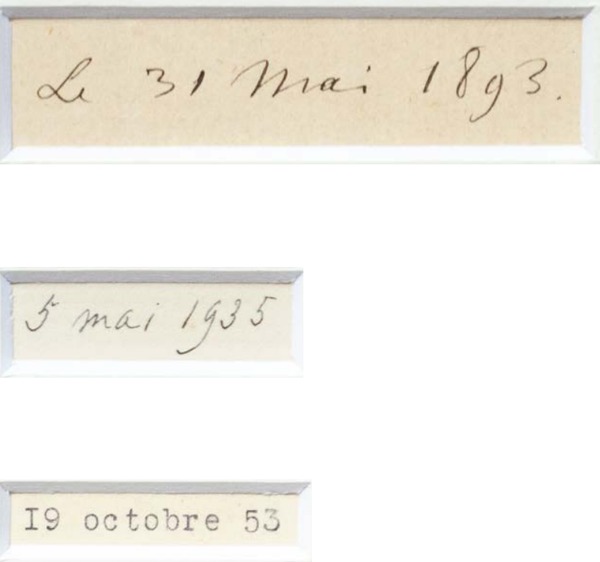 Le 31 Mai 1893.
5 mai 1935
I9 octobre 53